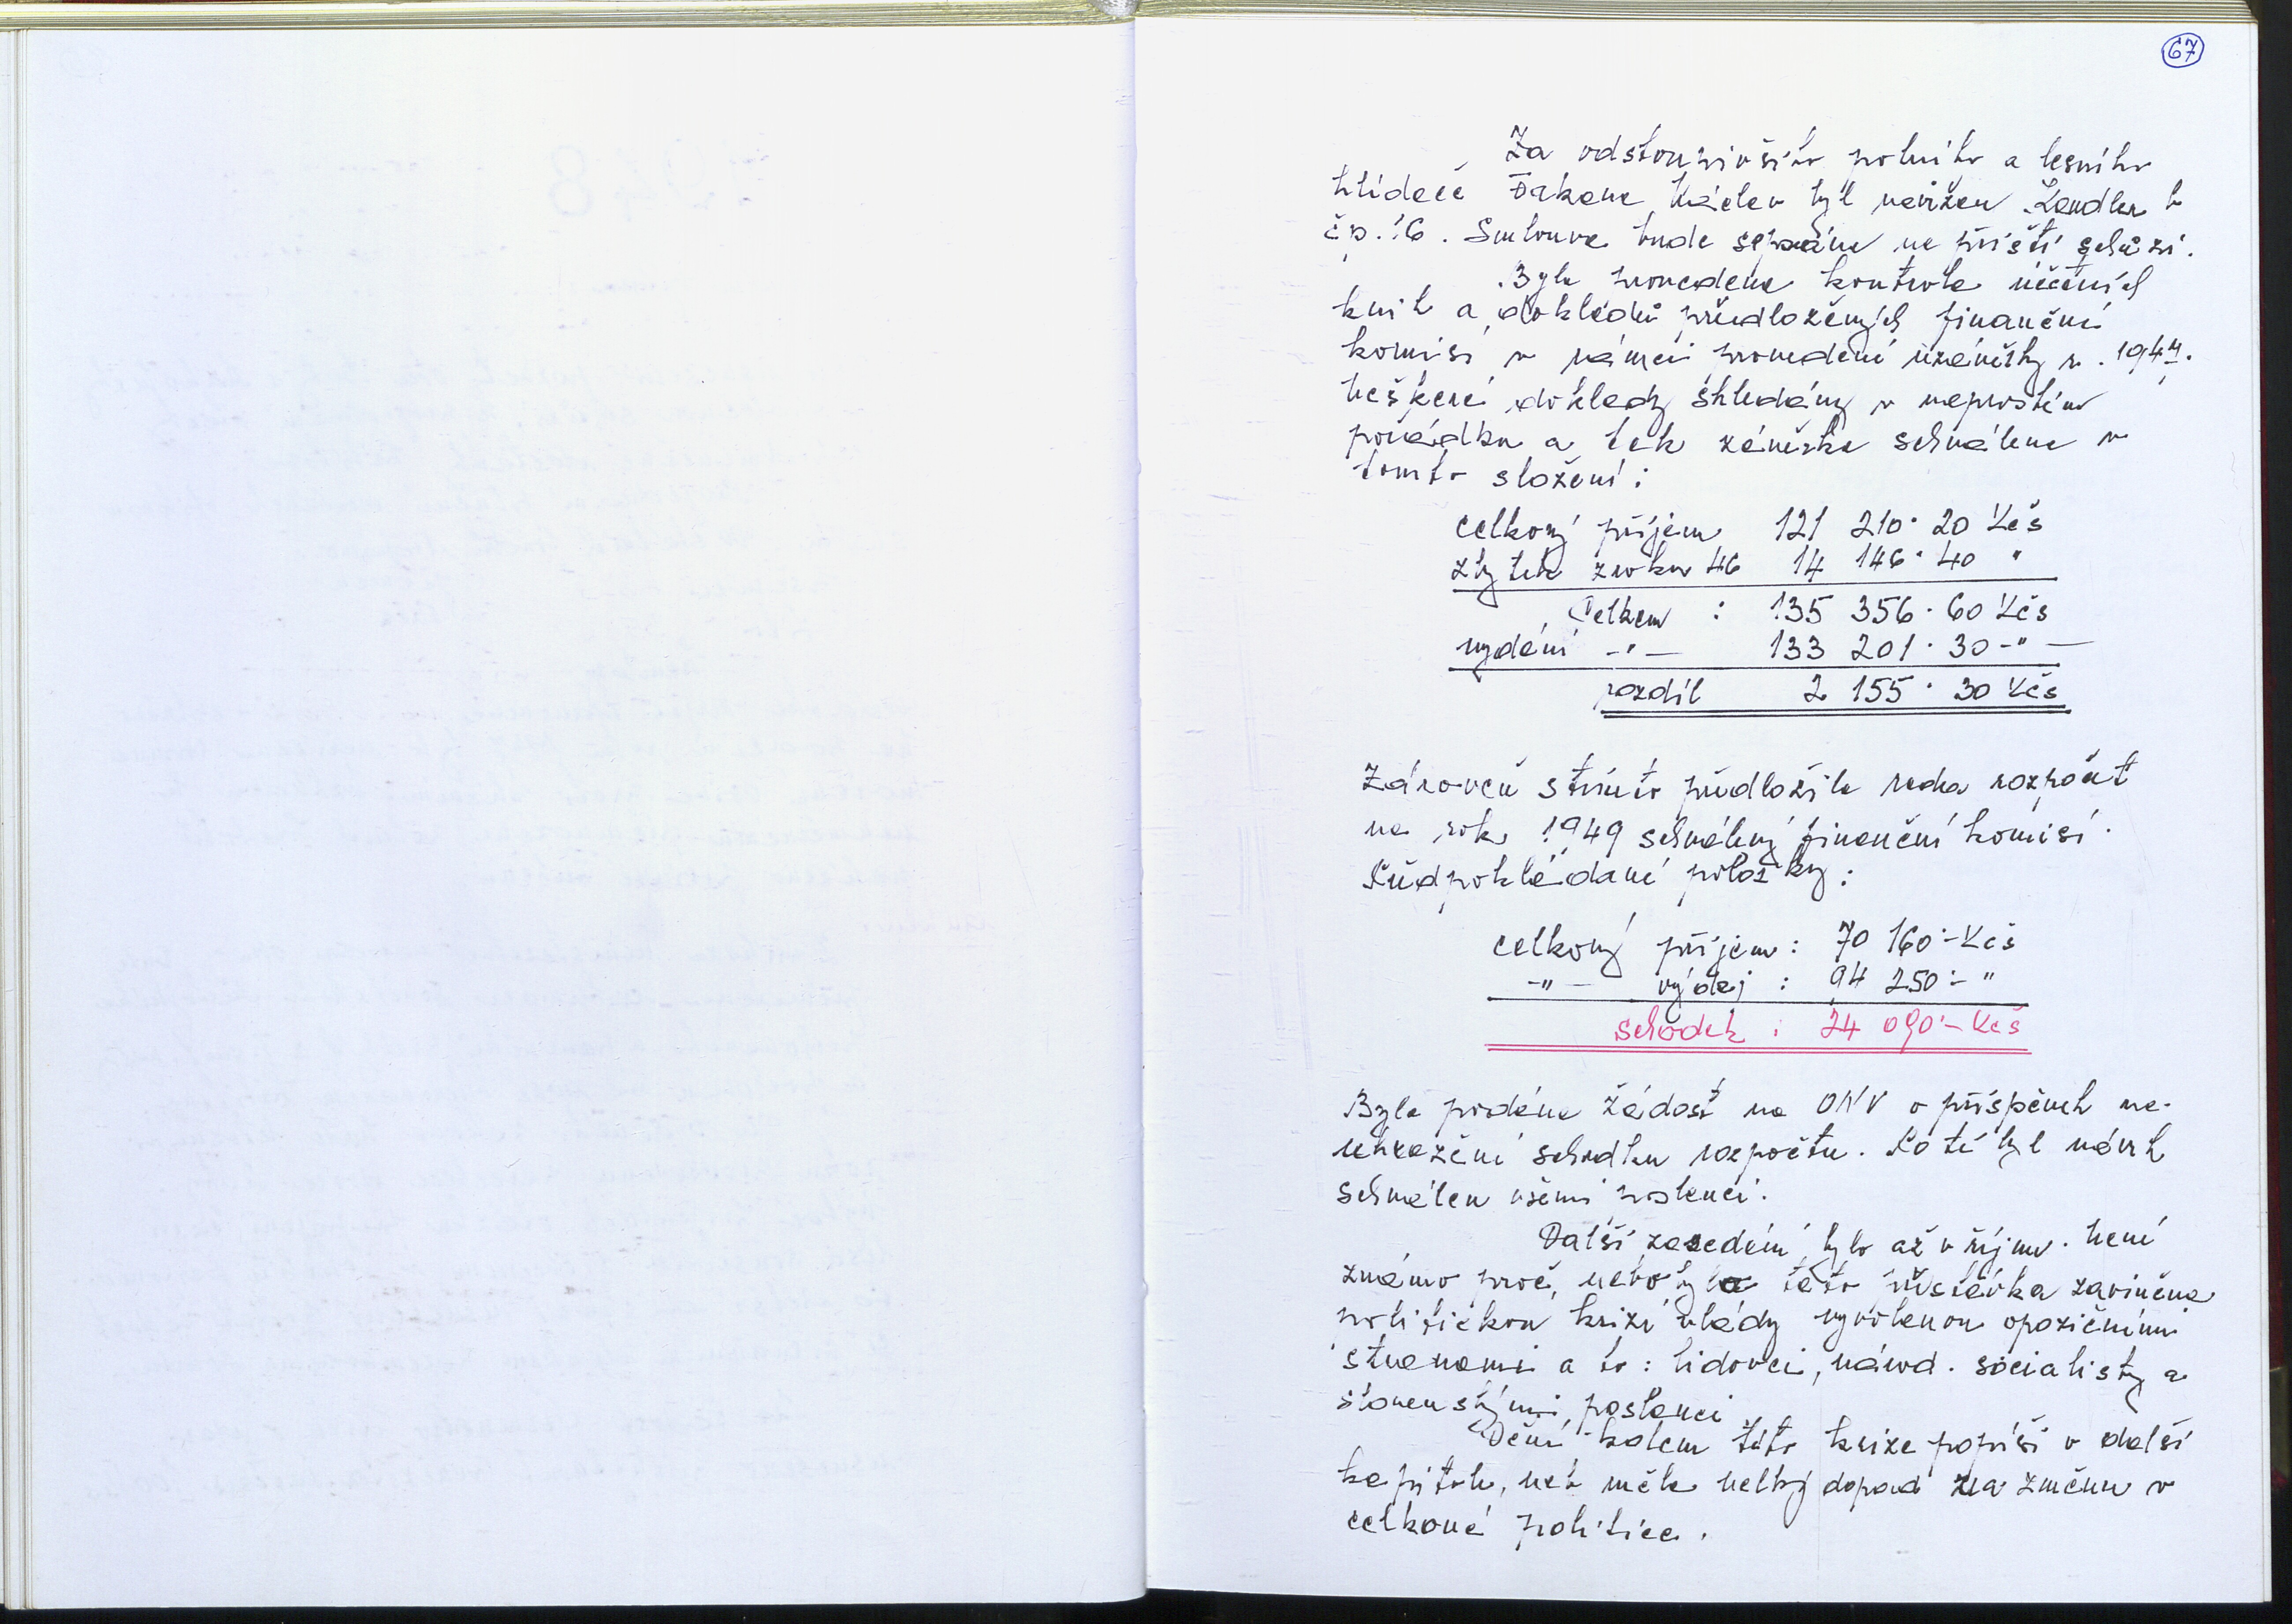 67
Za odstoupivšího polního a lesního
hlídače Václava byl navržen z
čp. 16. Smlouva bude sepsána na příští schůzi.
Byla provedena kontrola účetních
knih a dokladů předložených finanční
komisí v rámci provedení uzávěrky r. 1947.
Veškeré doklady shledány v naprostém
pořádku a tak závěrka schválena v
tomto složení:
celkový příjem 121 210·20 Kčs
zbytek z roku 46 14 146·40 "
Celkem : 135 356·60 Kčs
vydání -"- 133 201·30 -"-
rozdíl 2 155·30 Kčs
Zároveň s tímto předložila rada rozpočet
na rok 1949 schválený finanční komisí.
Předpokládané položky:
celkový příjem: 70 160·- Kčs
-"- výdej : 94 250·- "
schodek : 24 090·- Kčs
Byla podána žádost na ONV o příspěvek na
uhrazení schodku rozpočtu. Poté byl návrh
schválen všemi poslanci.
Další zasedání bylo až v říjnu. Není
známo proč, nebo byla tato přestávka zaviněna
politickou krizí vlády vyvolanou opozičními
stranami a to: lidovci, národ. socialisty a
slovenskými poslanci
Dění kolem této krize popíši v další
kapitole, neb měla velký dopad na změnu v
celkové politice.